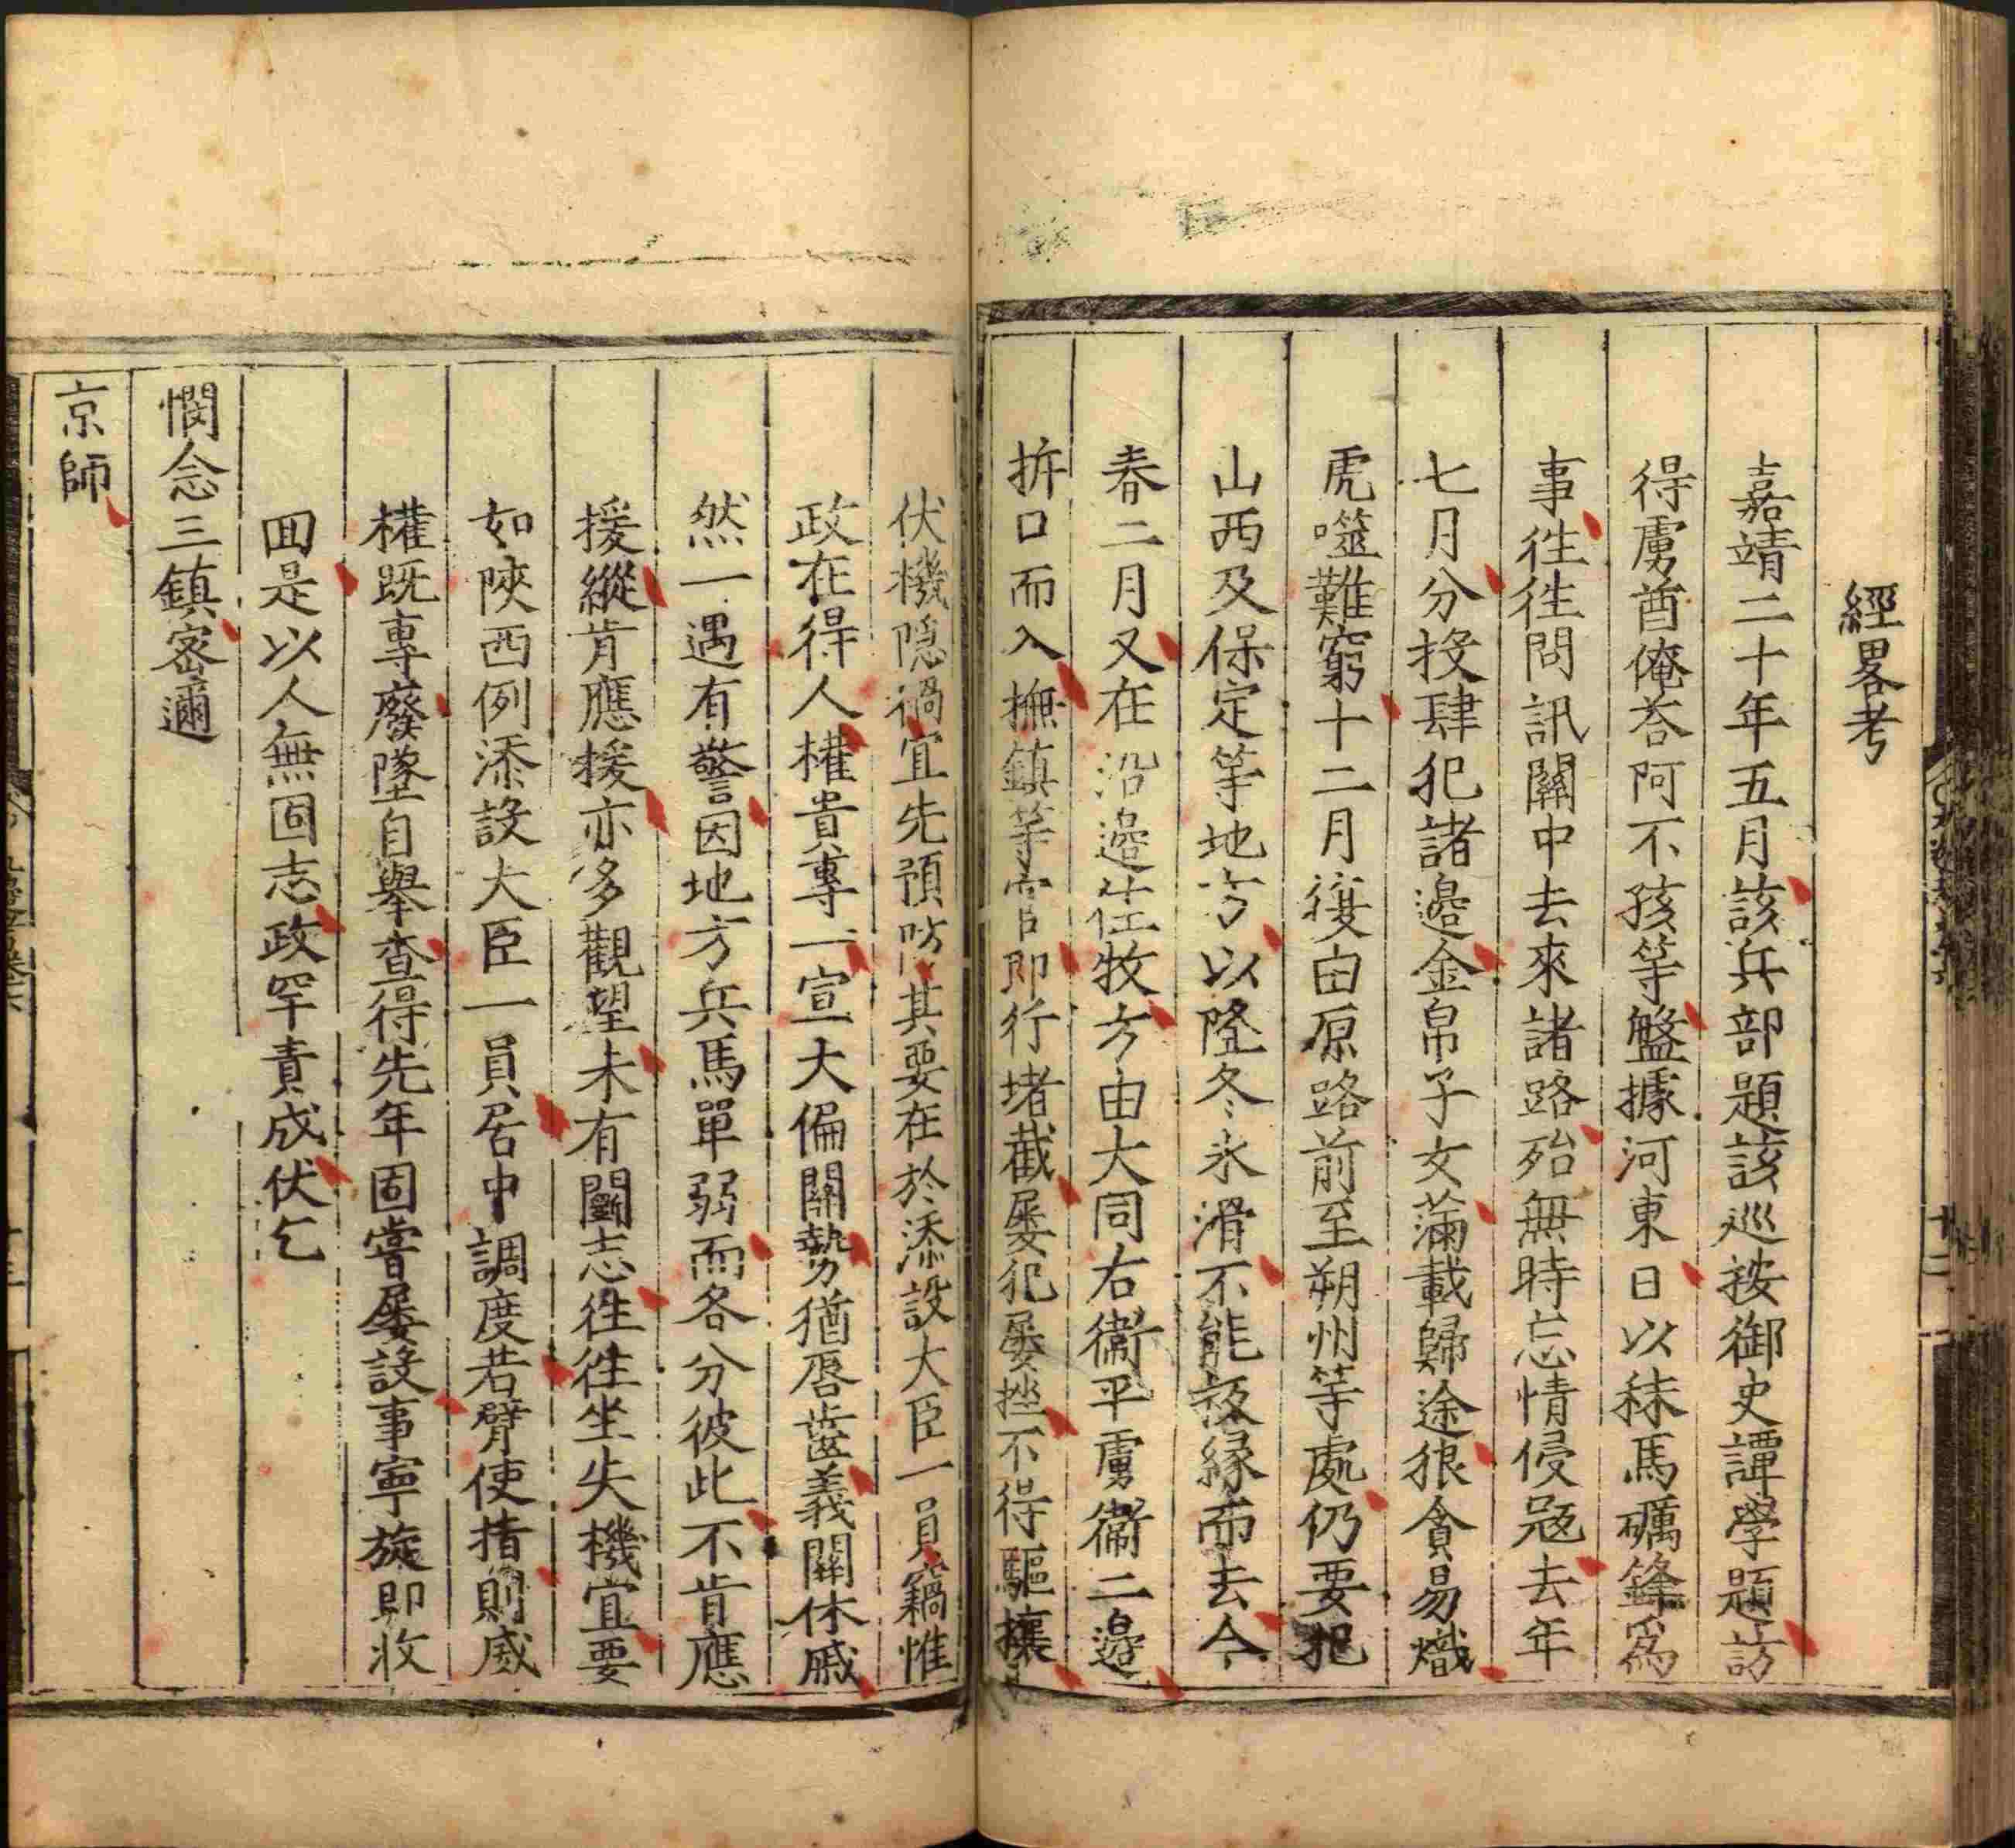 經畧考
嘉靖二十年五月該兵部題該巡按御史譚學題訪
得虜酋俺荅阿不孩等盤據河東日以秣馬礪鋒爲
事徃徃問訊關中去來諸路殆無時忘情侵冦去年
七月分投肆犯諸邉金帛子女滿載歸途狼貪易熾
虎噬難窮十二月復由原路前至朔州等處仍要犯
山西及保定等地方以隆冬氷滑不能扳縁而去今
春二月又在沿邉住牧方由大同右衞平虜衞二邉
拆口而入撫鎮等官即行堵截屡犯屡挫不得驅攘
伏機隠禍宜先預防其要在於添設大臣一員竊惟
政在得人權貴專一宣大偏關勢猶唇齒義關休戚
然一遇有警因地方兵馬單弱而各分彼此不肯應
援縱肯應援亦多觀望未有鬬志徃徃坐失機宜要
如陜西例添設大臣一員居中調度若臂使指則威
權既専廢墜自舉查得先年固嘗屡設事寧旋即收
囬是以人無固志政罕責成伏乞
憫念三鎮密邇
京師
十二